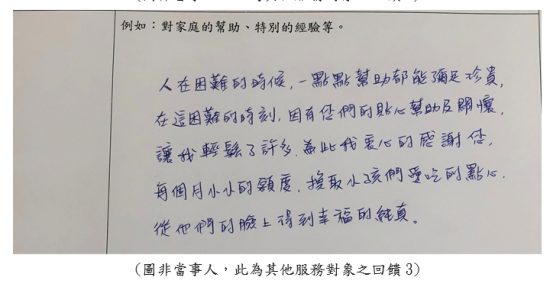 例如：對家庭的幫助、特別的經驗等。
人在困難的時候，一點點幫助都能彌足珍貴，
在這困難的時刻，因有您們的貼心幫助及關懷，
讓我輕鬆了許多，為此我衷心的感謝您，
每個月小小的額度，換取小孩們愛吃的點心，
從他們的臉上得到幸福的純真。
（圖非當事人，此為其他服務對象之回饋 3）